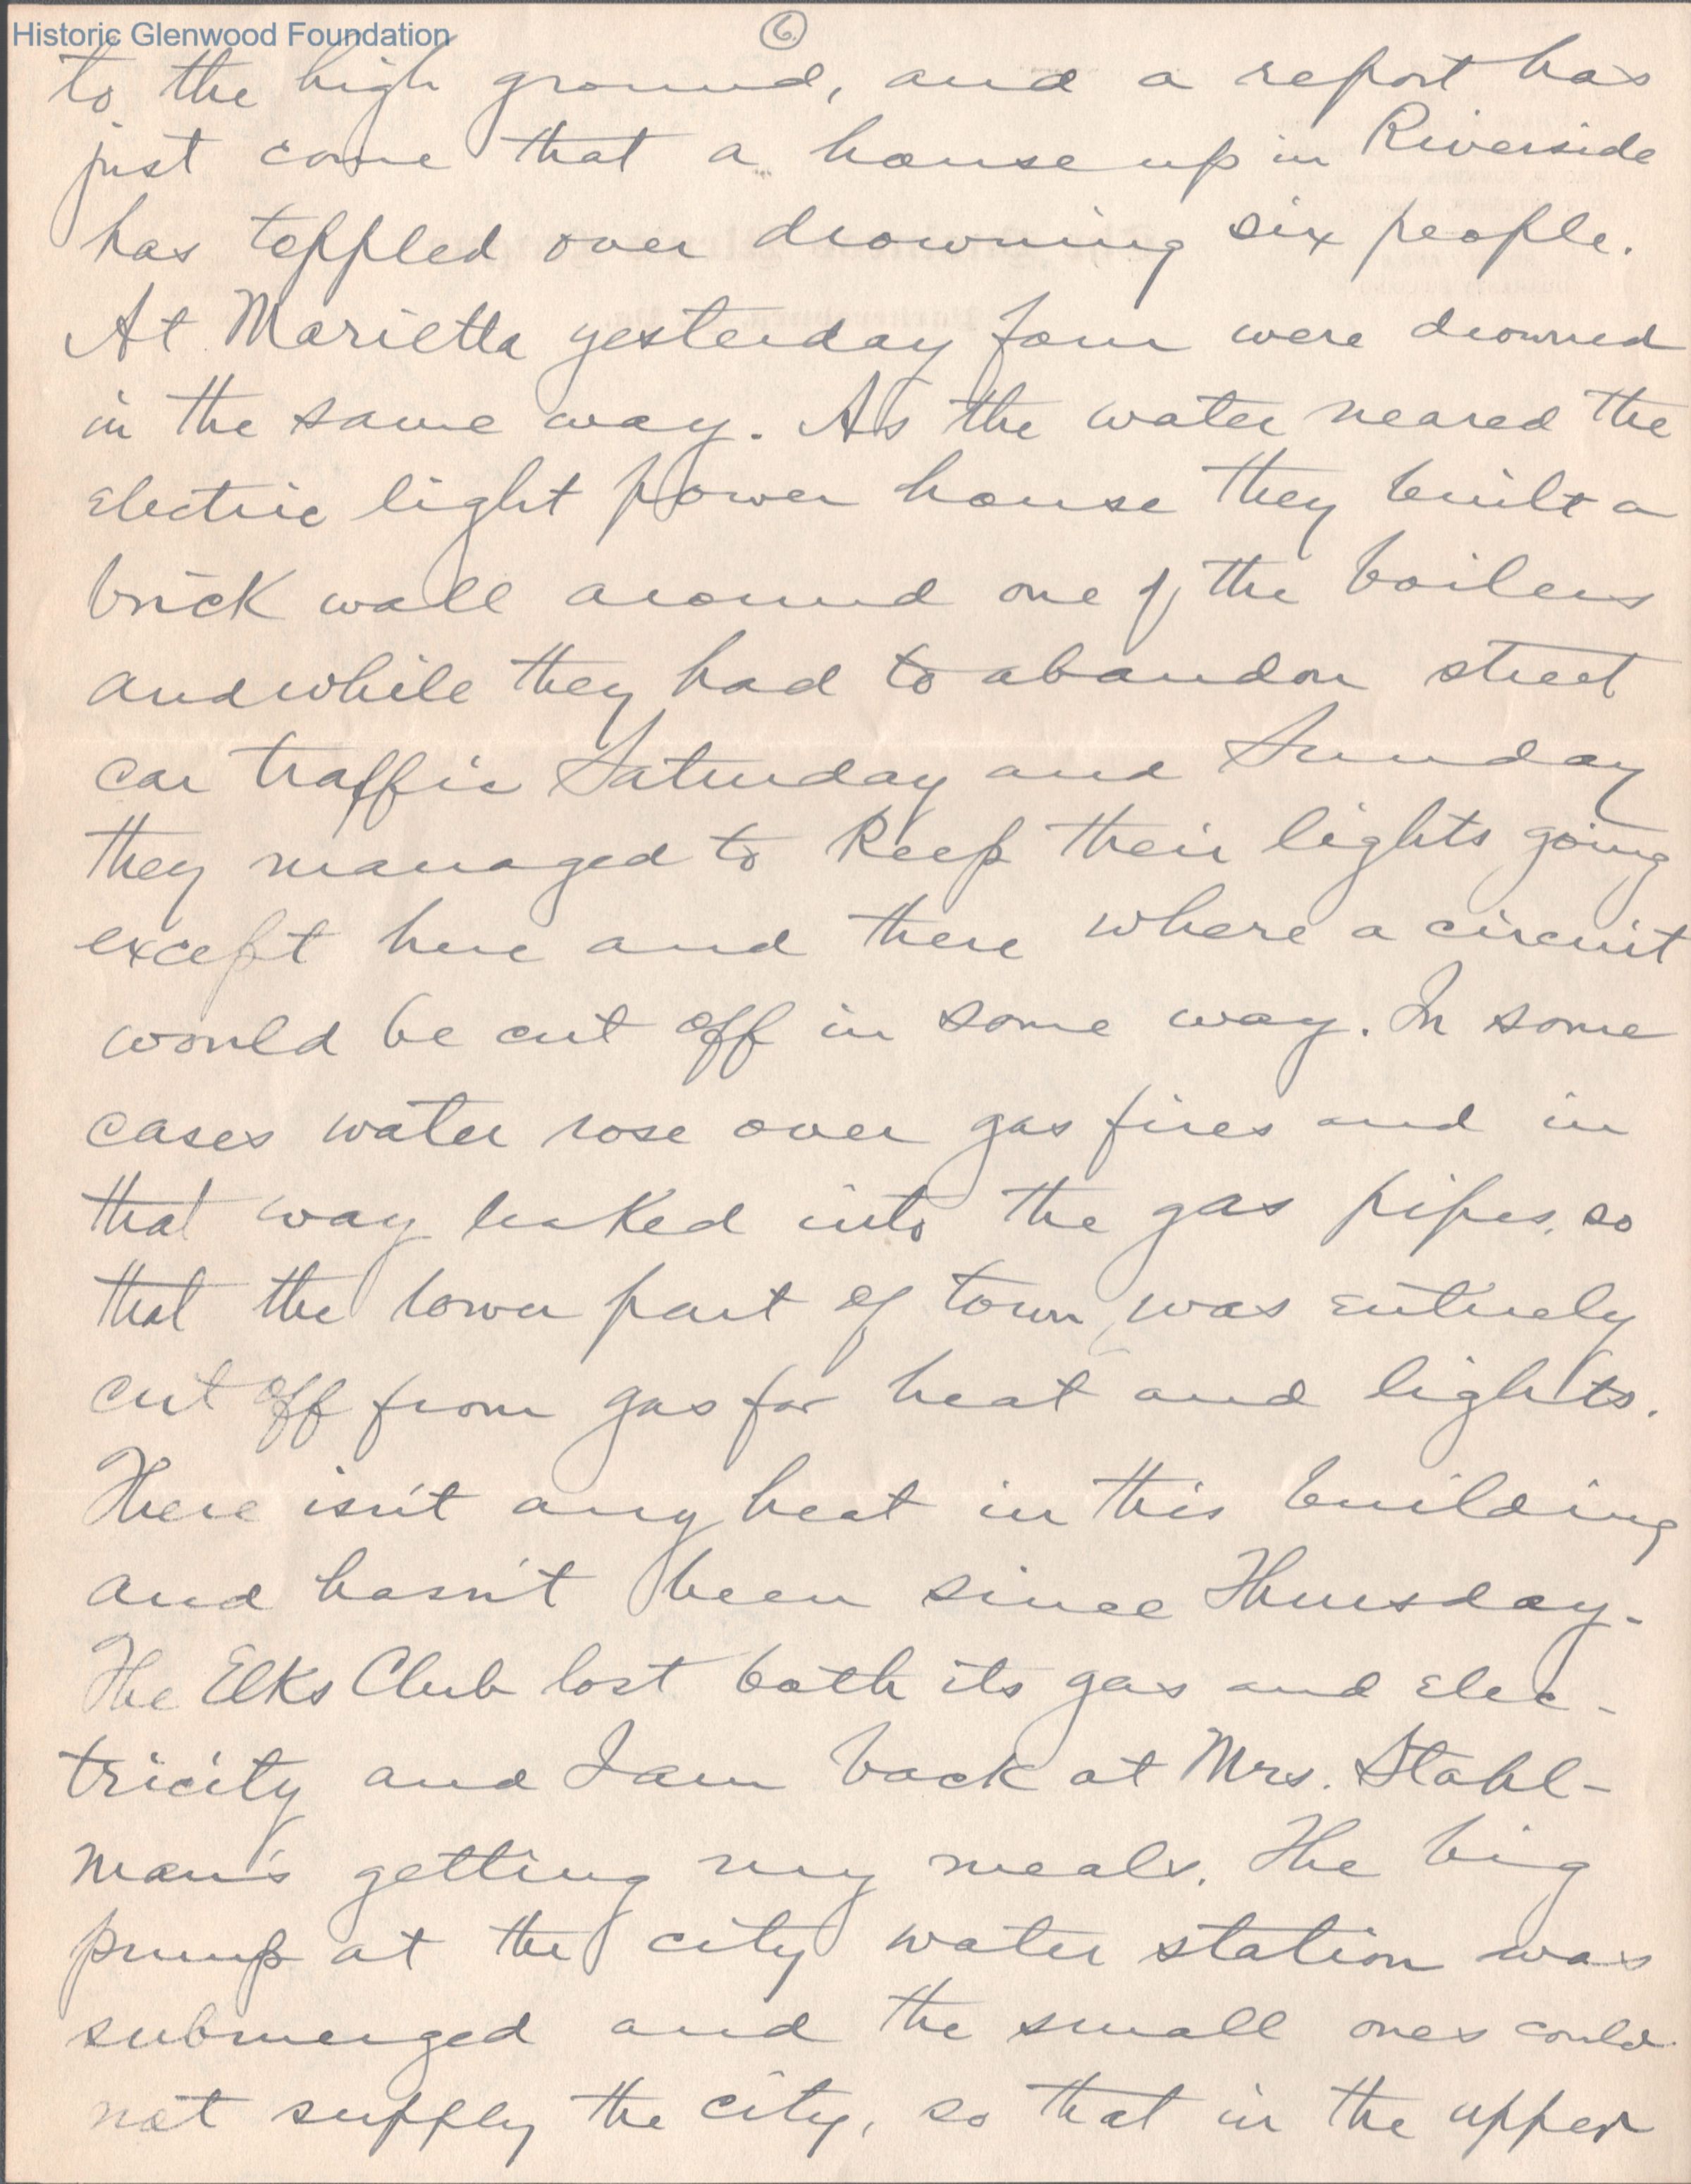 Historic Glenwood Foundation
6.
to the high ground, and a report has
just come that a house up in Riverside
has toppled over drowning six people.
At Marietta yesterday four were drowned
in the same way. As the water neared the
electric light power house they built a
brick wall around one of the boilers
and while they had to abandon street
car traffic Saturday and Sunday
they managed to keep their lights going
except here and there where a circuit
would be cut off in some way. In some
cases water rose over gas fires and in
that way leaked into the gas pipes, so
that the lower part of town was entirely
cut off from gas for heat and lights.
There isn't any heat in this building
and hasn't been since Thursday.
The Elks Club lost both its gas and elec-
tricity and I am back at Mrs. Stahl-
man's getting my meals. The big
pump at the city water station was
submerged and the small ones could
not supply the city, so that in the upper